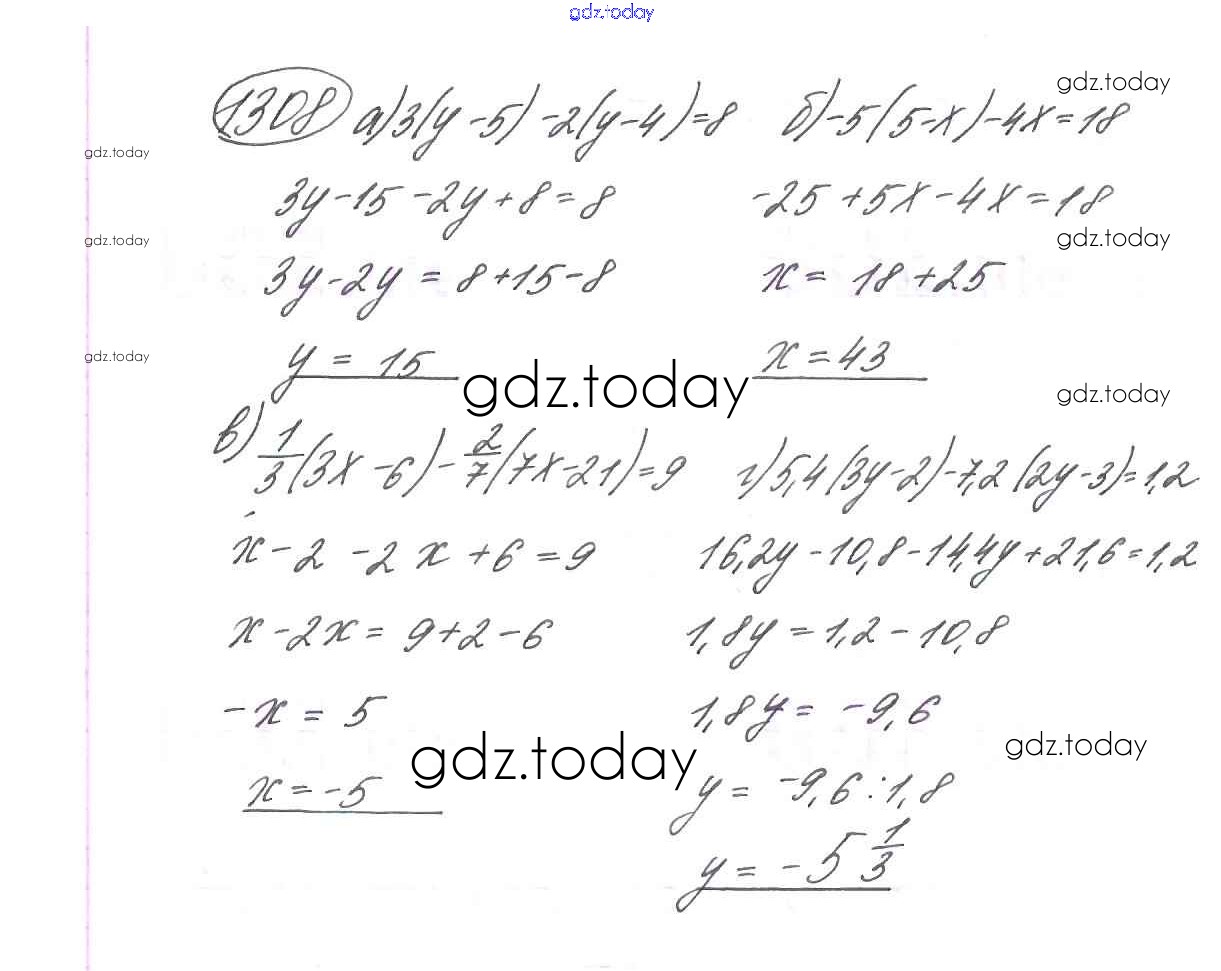 gdz.today
1308 а) 3(y-5)-2(y-4)=8 б) -5(5-x)-4x=18
gdz.today
gdz.today
3y-15-2y+8=8 -25+5x-4x=18
gdz.today
gdz.today
3y-2y=8+15-8 x=18+25
gdz.today
y=15 x=43
gdz.today
gdz.today
в) 1/3(3x-6)-2/7(7x-21)=9 г) 5,4(3y-2)-7,2(2y-3)=1,2
x-2-2x+6=9 16,2y-10,8-14,4y+21,6=1,2
x-2x=9+2-6 1,8y=1,2-10,8
-x=5 1,8y=-9,6
gdz.today
gdz.today
x=-5 y=-9,6:1,8
y=-5 1/3